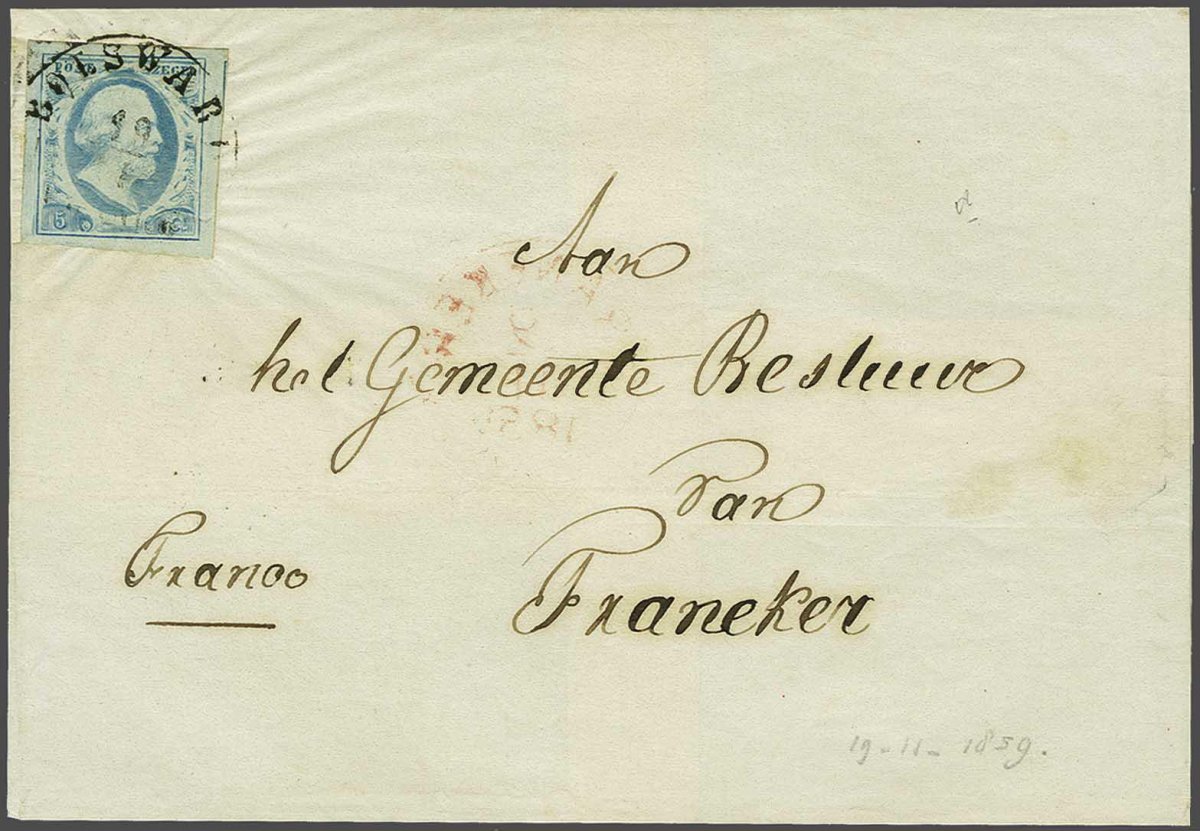 POST ZEGEL
BOLSWAR
19
5 C.
Aan
het Gemeente Bestuur
Van
Franeker
Franco
19-11-1859.